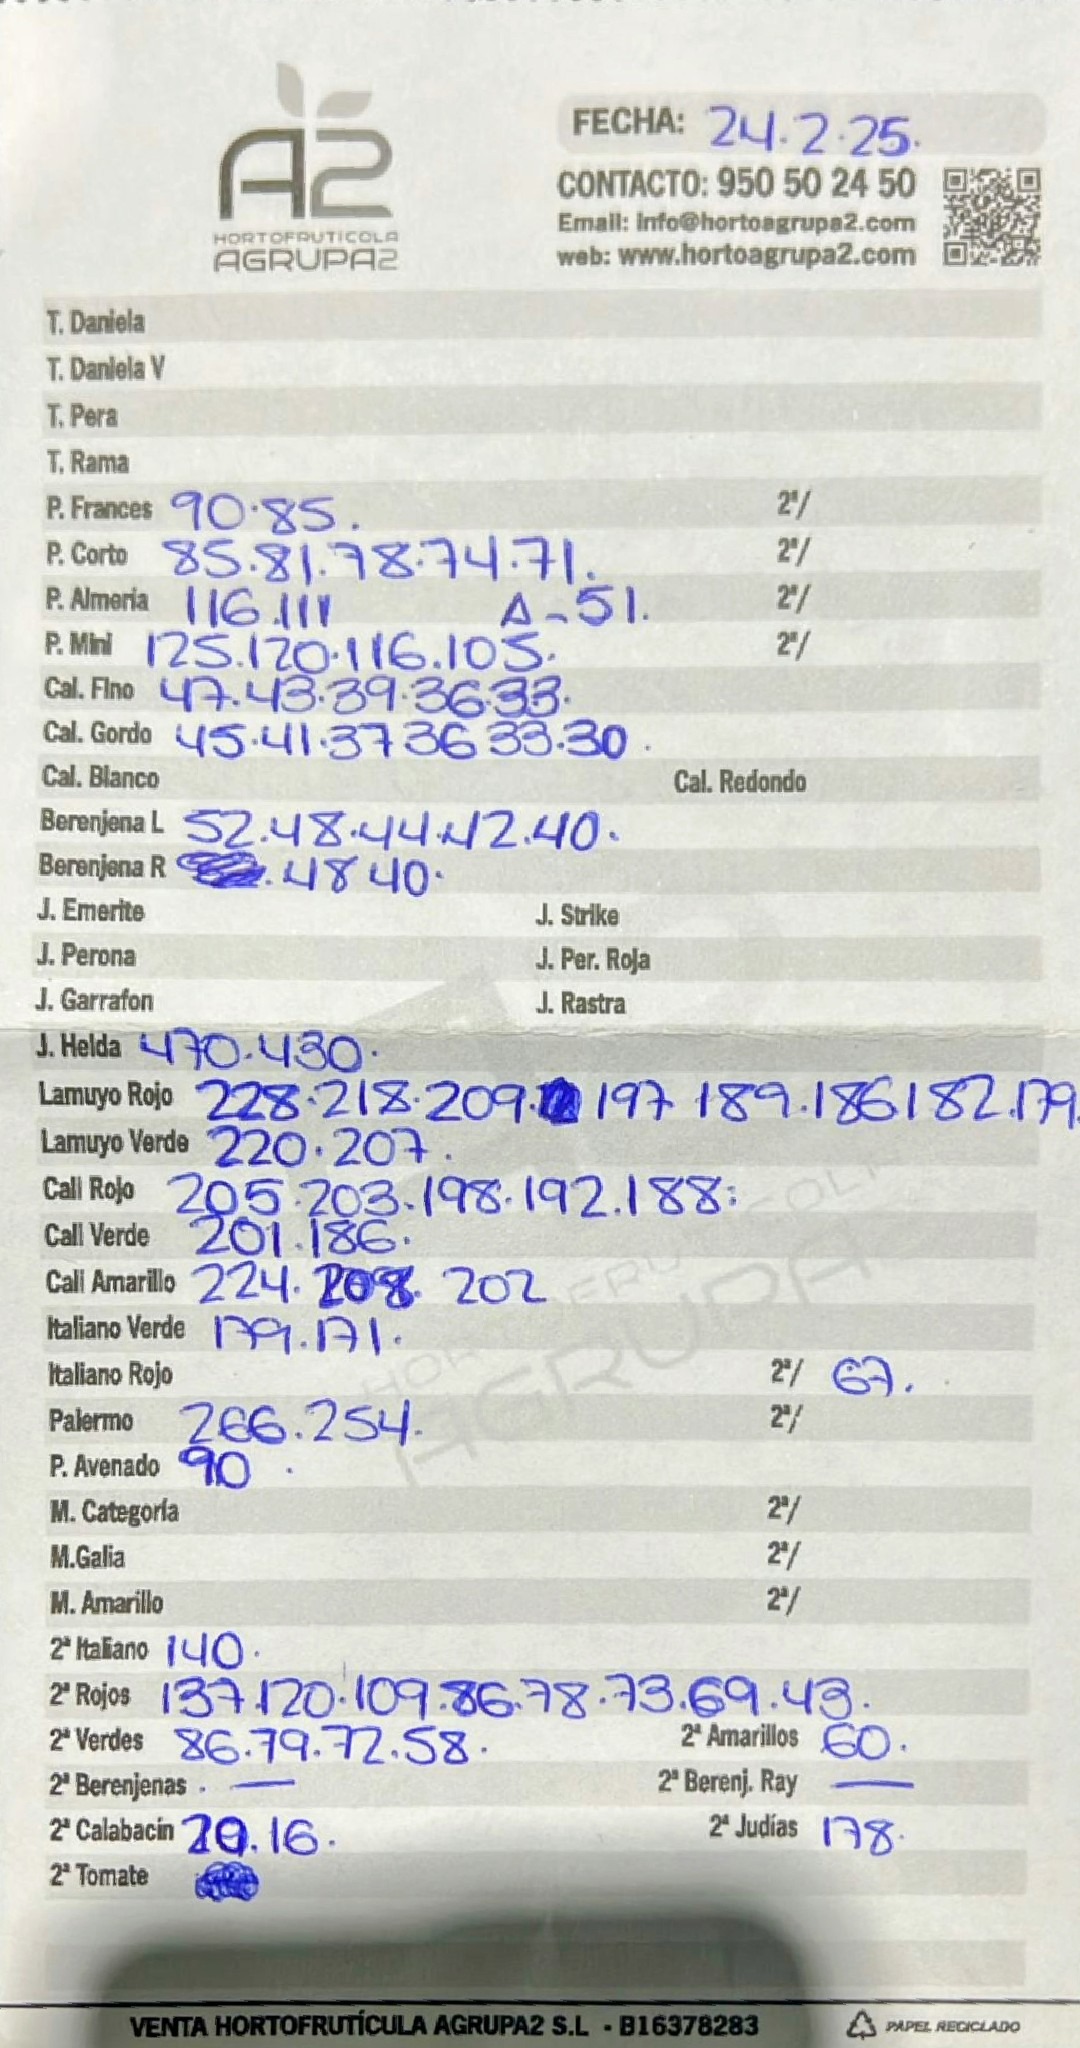 A2
HORTOFRUTICOLA
AGRUPA2
FECHA: 24.2.25.
CONTACTO: 950 50 24 50
Email: info@hortoagrupa2.com
web: www.hortoagrupa2.com
T. Daniela
T. Daniela V
T. Pera
T. Rama
P. Frances 90.85. 2ª/
P. Corto 85.81.78.74.71. 2ª/
P. Almería 116.111 A-51. 2ª/
P. Mini 125.120.116.105. 2ª/
Cal. Fino 47.43.39.36.33.
Cal. Gordo 45.41.37 36 33.30.
Cal. Blanco Cal. Redondo
Berenjena L 52.48.44.42.40.
Berenjena R .48 40.
J. Emerite J. Strike
J. Perona J. Per. Roja
J. Garrafon J. Rastra
J. Helda 470.430.
Lamuyo Rojo 228.218.209. 197 189.186 182.179.
Lamuyo Verde 220.207.
Cali Rojo 205.203.198.192.188.
Cali Verde 201.186.
Cali Amarillo 224. 202
Italiano Verde 179.171.
Italiano Rojo 2ª/ 67.
Palermo 266.254. 2ª/
P. Avenado 90.
M. Categoría 2ª/
M.Galia 2ª/
M. Amarillo 2ª/
2ª Italiano 140.
2ª Rojos 137.120.109.86.78.73.69.43.
2ª Verdes 86.79.72.58. 2ª Amarillos 60.
2ª Berenjenas . — 2ª Berenj. Ray —
2ª Calabacín .16. 2ª Judías 178.
2ª Tomate
VENTA HORTOFRUTÍCULA AGRUPA2 S.L - B16378283 PAPEL RECICLADO